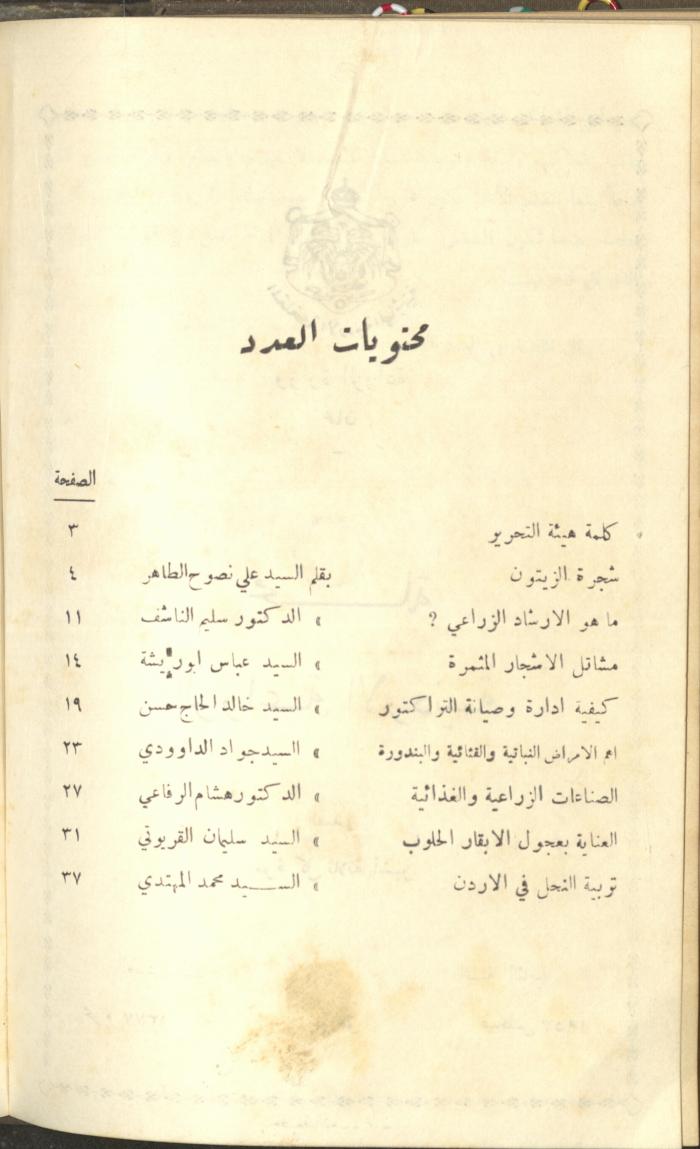 محتويات العدد
الصفحة
كلمة هيئة التحرير ٣
شجرة الزيتون بقلم السيد علي نصوح الطاهر ٤
ما هو الارشاد الزراعي ? » الدكتور سليم الناشف ١١
مشاتل الاشجار المثمرة » السيد عباس ابوريشة ١٤
كيفية ادارة وصيانة التراكتور » السيد خالد الحاج حسن ١٩
اهم الامراض النباتية والقثائية والبندورة » السيد جواد الداوودي ٢٣
الصناعات الزراعية والغذائية » الدكتور هشام الرفاعي ٢٧
العناية بعجول الابقار الحلوب » السيد سليمان القريوتي ٣١
توبية النحل في الاردن » الســـيد محمد المهتدي ٣٧